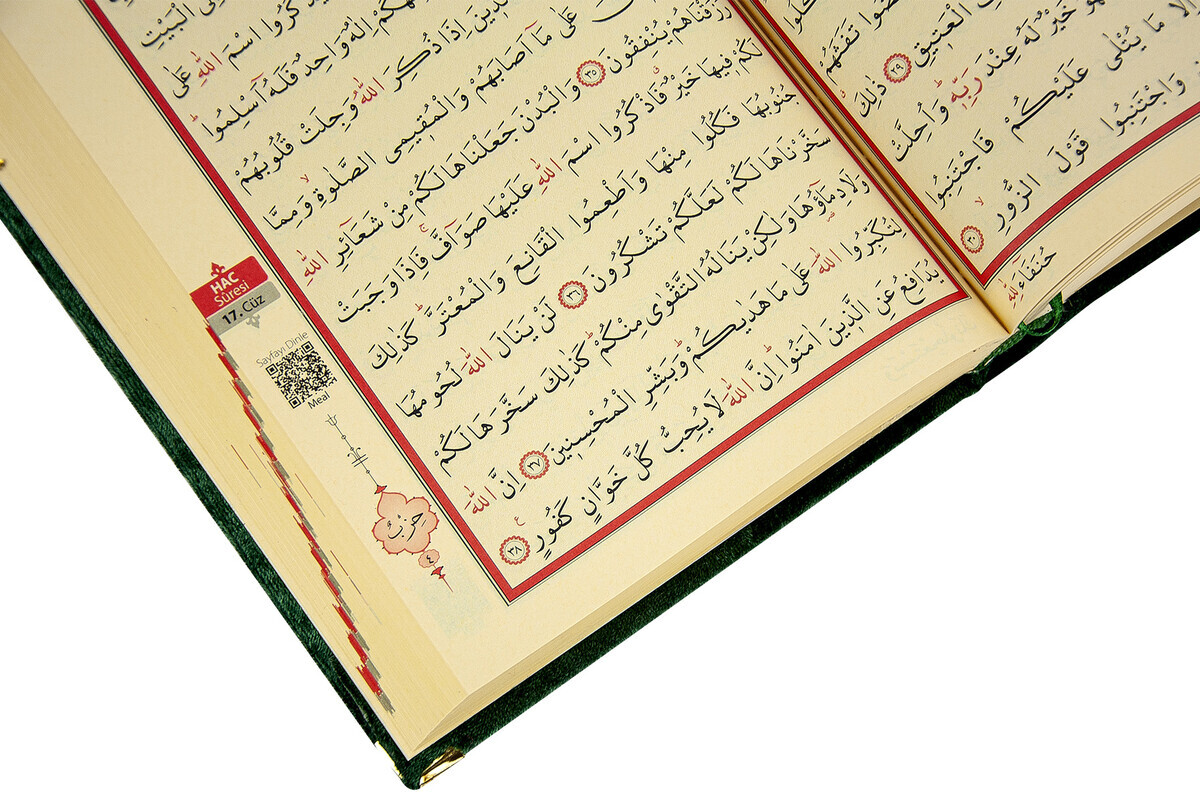 تَفَثَهُمْ
الْعَتٖيقِ ٢٩ ذٰلِكَ
خَيْرٌ لَهُ عِنْدَ رَبِّهٖ وَاُحِلَّتْ
اِلَّا مَا يُتْلٰى عَلَيْكُمْ فَاجْتَنِبُوا
وَاجْتَنِبُوا قَوْلَ الزُّورِ ٣٠
حُنَفَٓاءَ لِلّٰهِ
الْبَيْتِ
اسْمَ اللّٰهِ عَلٰى
اِلٰهٌ وَاحِدٌ فَلَهُٓ اَسْلِمُوا
اِذَا ذُكِرَ اللّٰهُ وَجِلَتْ قُلُوبُهُمْ
عَلٰى مَٓا اَصَابَهُمْ وَالْمُقٖيمِى الصَّلٰوةِ وَمِمَّا
رَزَقْنَاهُمْ يُنْفِقُونَ ٣٥ وَالْبُدْنَ جَعَلْنَاهَا لَكُمْ مِنْ شَعَٓائِرِ اللّٰهِ
لَكُمْ فٖيهَا خَيْرٌ فَاذْكُرُوا اسْمَ اللّٰهِ عَلَيْهَا صَوَٓافَّ فَاِذَا وَجَبَتْ
جُنُوبُهَا فَكُلُوا مِنْهَا وَاَطْعِمُوا الْقَانِعَ وَالْمُعْتَرَّ كَذٰلِكَ
سَخَّرْنَاهَا لَكُمْ لَعَلَّكُمْ تَشْكُرُونَ ٣٦ لَنْ يَنَالَ اللّٰهَ لُحُومُهَا
وَلَا دِمَٓاؤُهَا وَلٰكِنْ يَنَالُهُ التَّقْوٰى مِنْكُمْ كَذٰلِكَ سَخَّرَهَا لَكُمْ
لِتُكَبِّرُوا اللّٰهَ عَلٰى مَا هَدٰيكُمْ وَبَشِّرِ الْمُحْسِنٖينَ ٣٧ اِنَّ اللّٰهَ
يُدَافِعُ عَنِ الَّذٖينَ اٰمَنُوا اِنَّ اللّٰهَ لَا يُحِبُّ كُلَّ خَوَّانٍ كَفُورٍ ٣٨
HAC
Sûresi
17. Cüz
Sayfayı Dinle
Meal
حِزْبٌ
٤